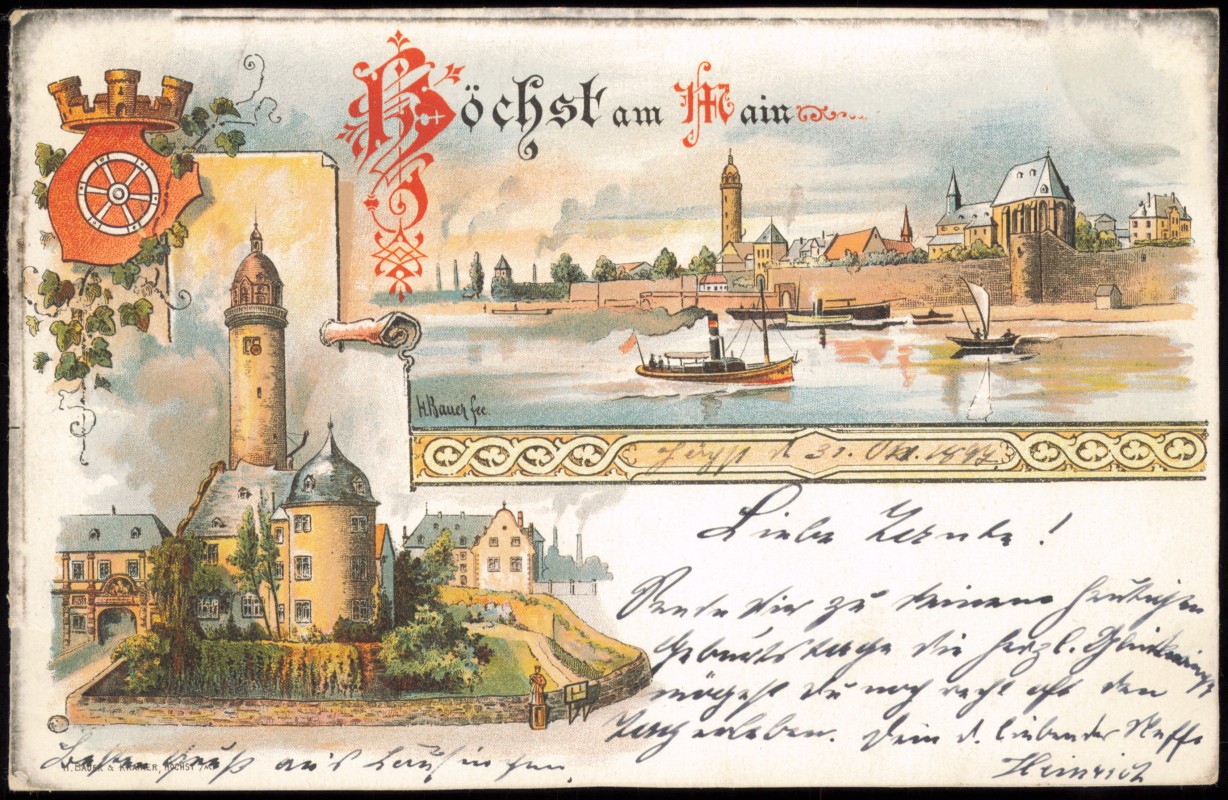 Höchst am Main
H. Bauer fec.
Höchst d 31. Okt. 1897
Liebe !
Sende dir zu deinem heutigen
Geburtstage die herzl. Glückwünsche
mögest du noch recht oft den
Tag erleben. Dein d. liebender Neffe
Heinrich
aus
H. BAUER & KRÄMER, HÖCHST a/M.